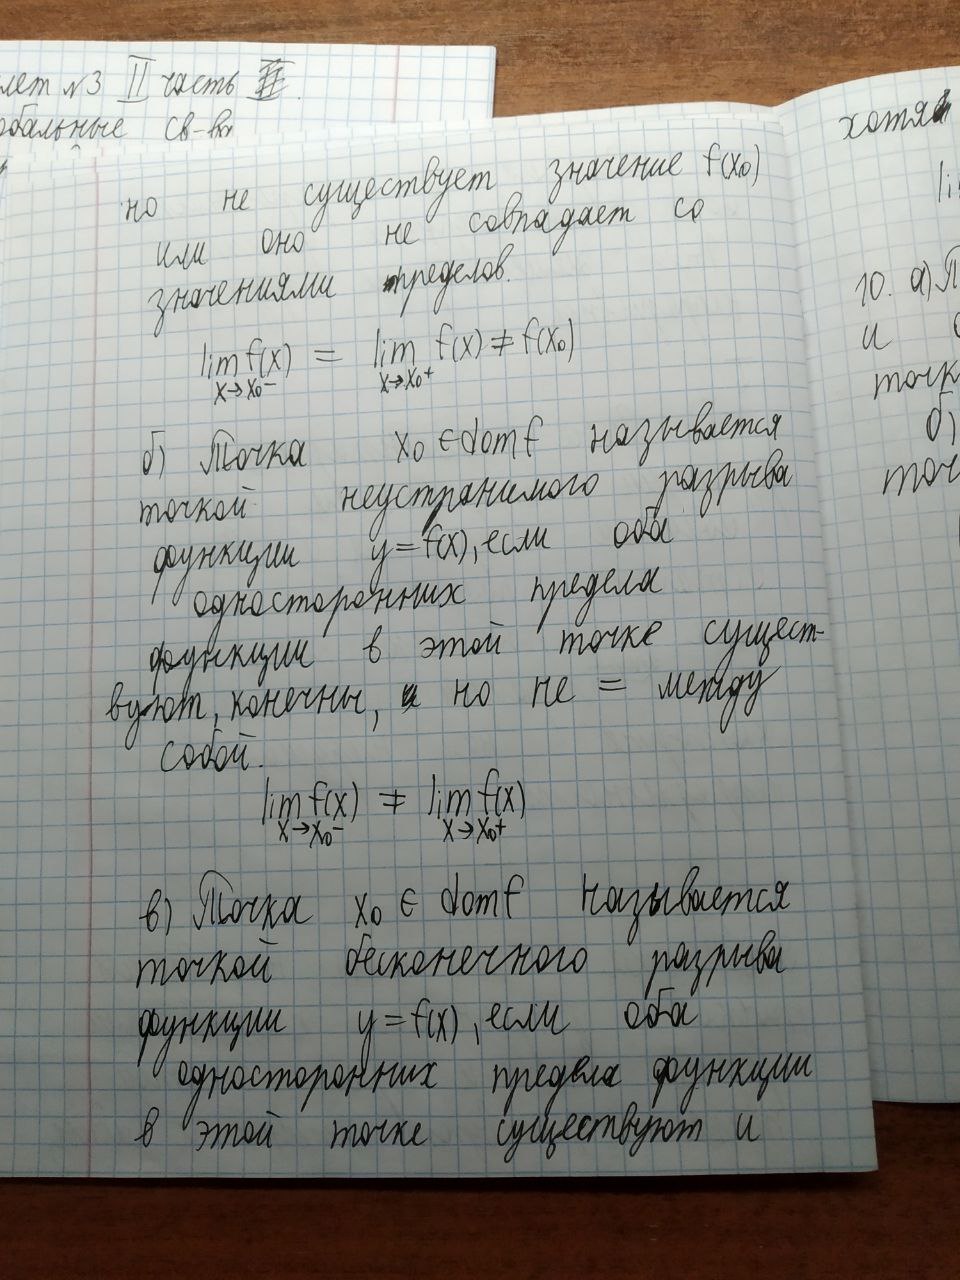 №3 II часть II.
св-ва
но не существует значение f(x₀)
или оно не совпадает со
значениями пределов.
lim f(x) = lim f(x) ≠ f(x₀)
x→x₀⁻ x→x₀⁺
б) Точка x₀ ∈ domf называется
точкой неустранимого разрыва
функции y=f(x), если оба
односторонних предела
функции в этой точке сущест-
вуют, конечны, но не = между
собой.
lim f(x) ≠ lim f(x)
x→x₀⁻ x→x₀⁺
в) Точка x₀ ∈ domf называется
точкой бесконечного разрыва
функции y=f(x), если оба
односторонних предела функции
в этой точке существуют и
хотя
10. а)
и
точк
б)
точ